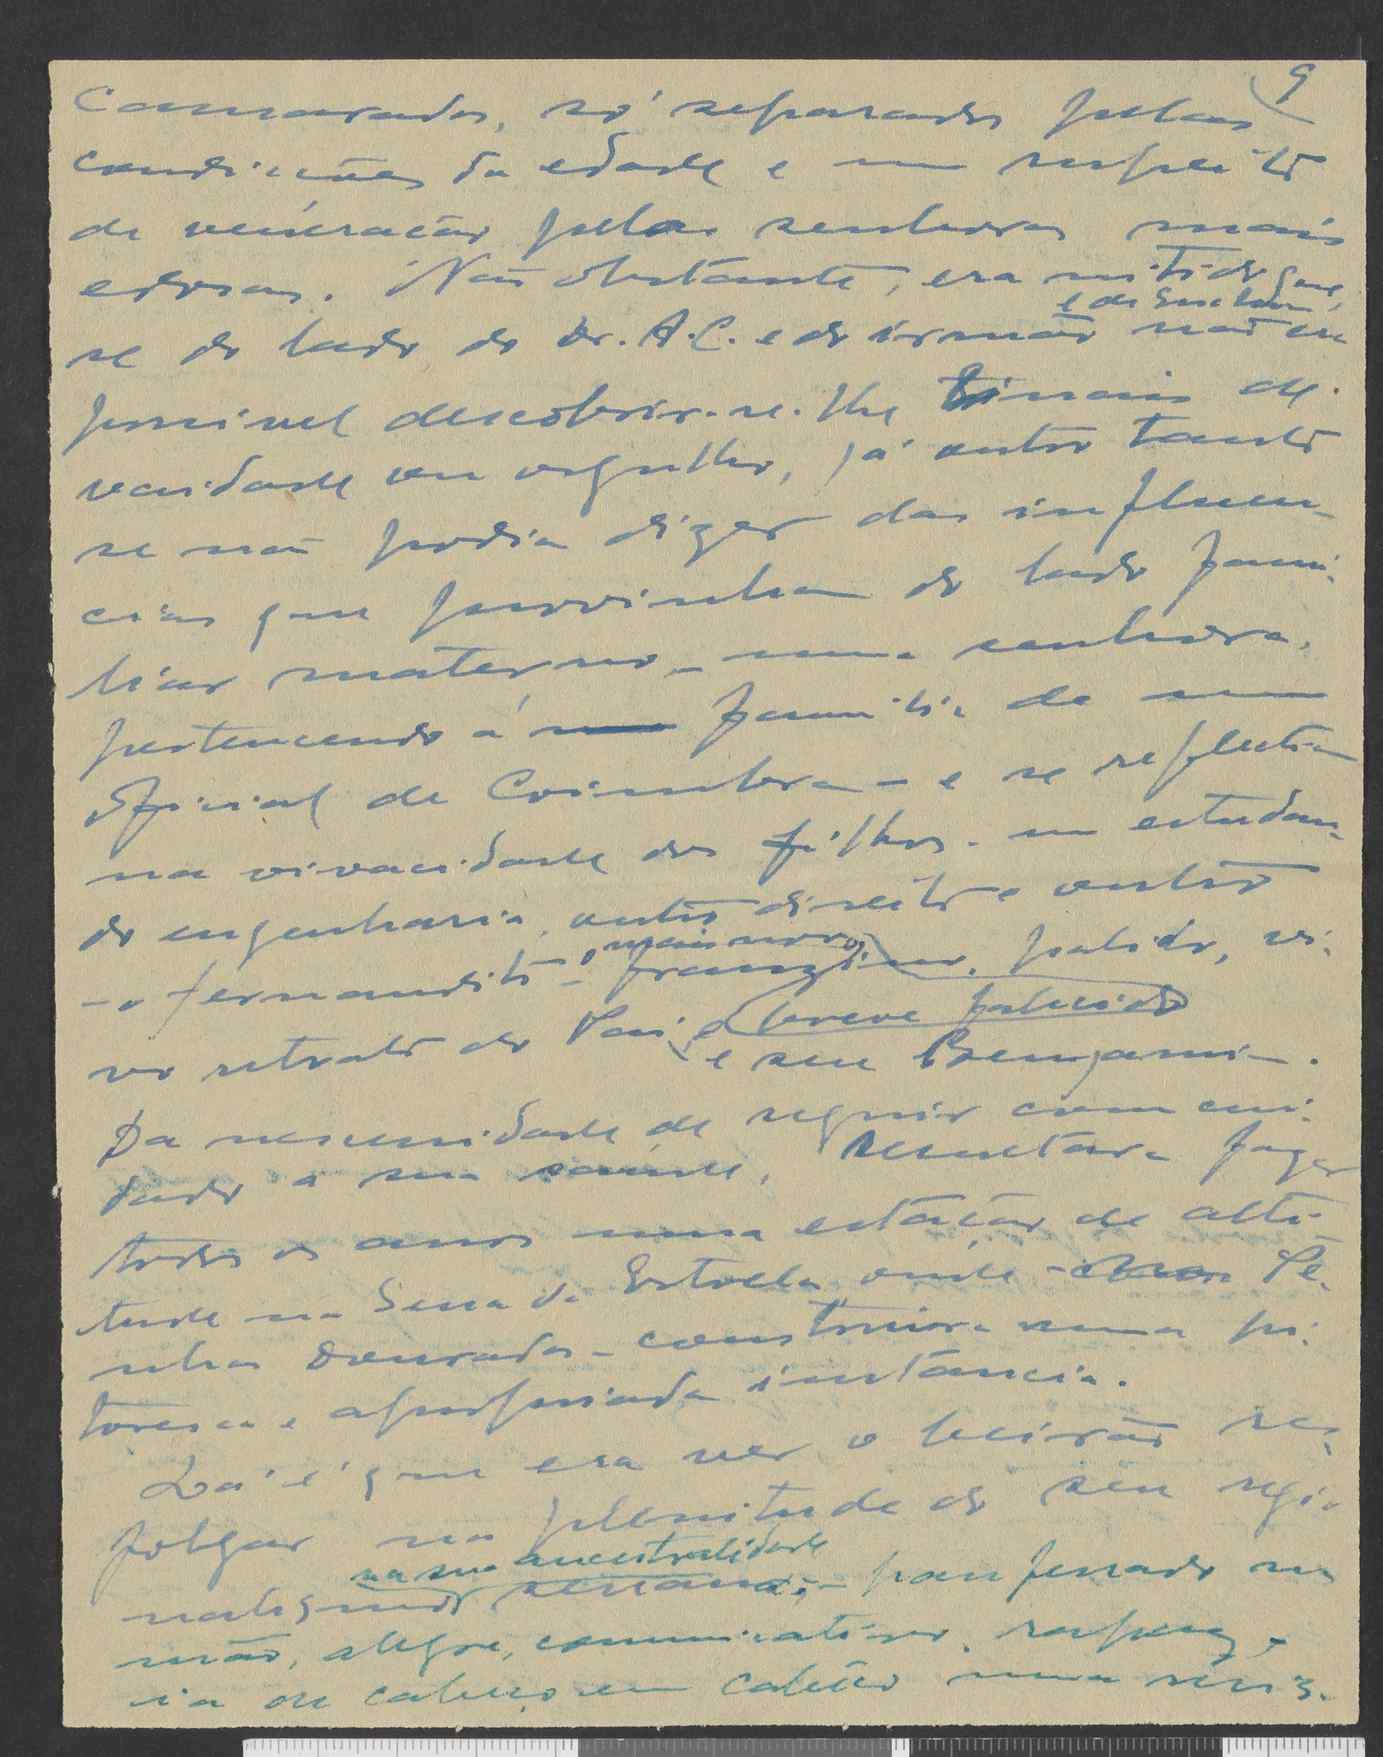 9
Camaradas, só separados pelas
condicções da edade e um respeito
de veneração pelas senhoras mais
edosas. Não obstante, era nitido que,
se do lado do Dr. A.C. e do irmão não era
possivel descobrir-se-lhe sinais de
vaidade ou orgulho, já outro tanto
se não podia dizer das influen-
cias que provinham do lado fami-
liar materno - uma senhora,
pertencendo á familia de um
oficial de Coimbra - e se reflectia
na vivacidade dos filhos - um estudan-
do engenharia, outro direito e outro
o mais novo
- o Fernandito - franzino, palido, vi-
vo retrato do Pai, breve falecido
e seu Benjamin.
Da necessidade de seguir com cui-
dado a sua saude, resultara fazer
todos os anos uma estação de alti-
tude na Serra da Estrella onde - Pe-
nhas Douradas - construira uma pi-
toresca e apropriada instancia.
Lá é que era ver o beirão re-
folgar na plenitude do seu regio-
na sua ancestralidade
nalismo serrano; - pau ferrado na
mão, alegre, comunicativo,
ia de cabeço em cabeço numa